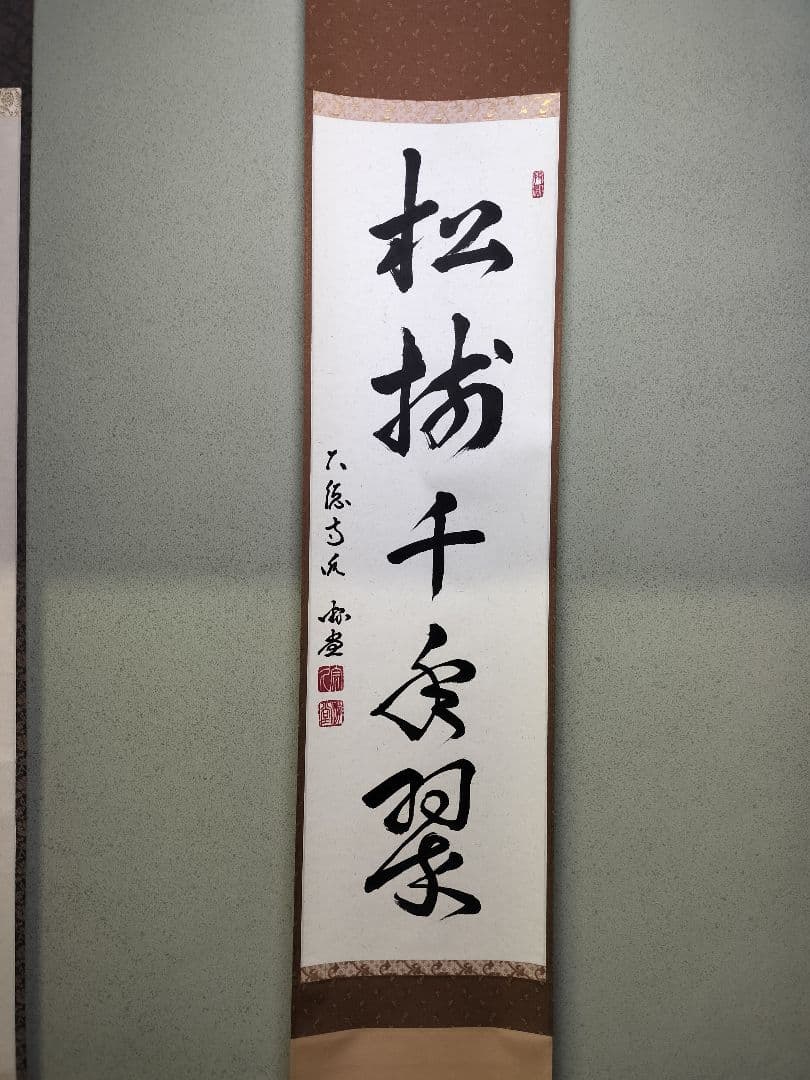 松樹千年翠
大徳寺派